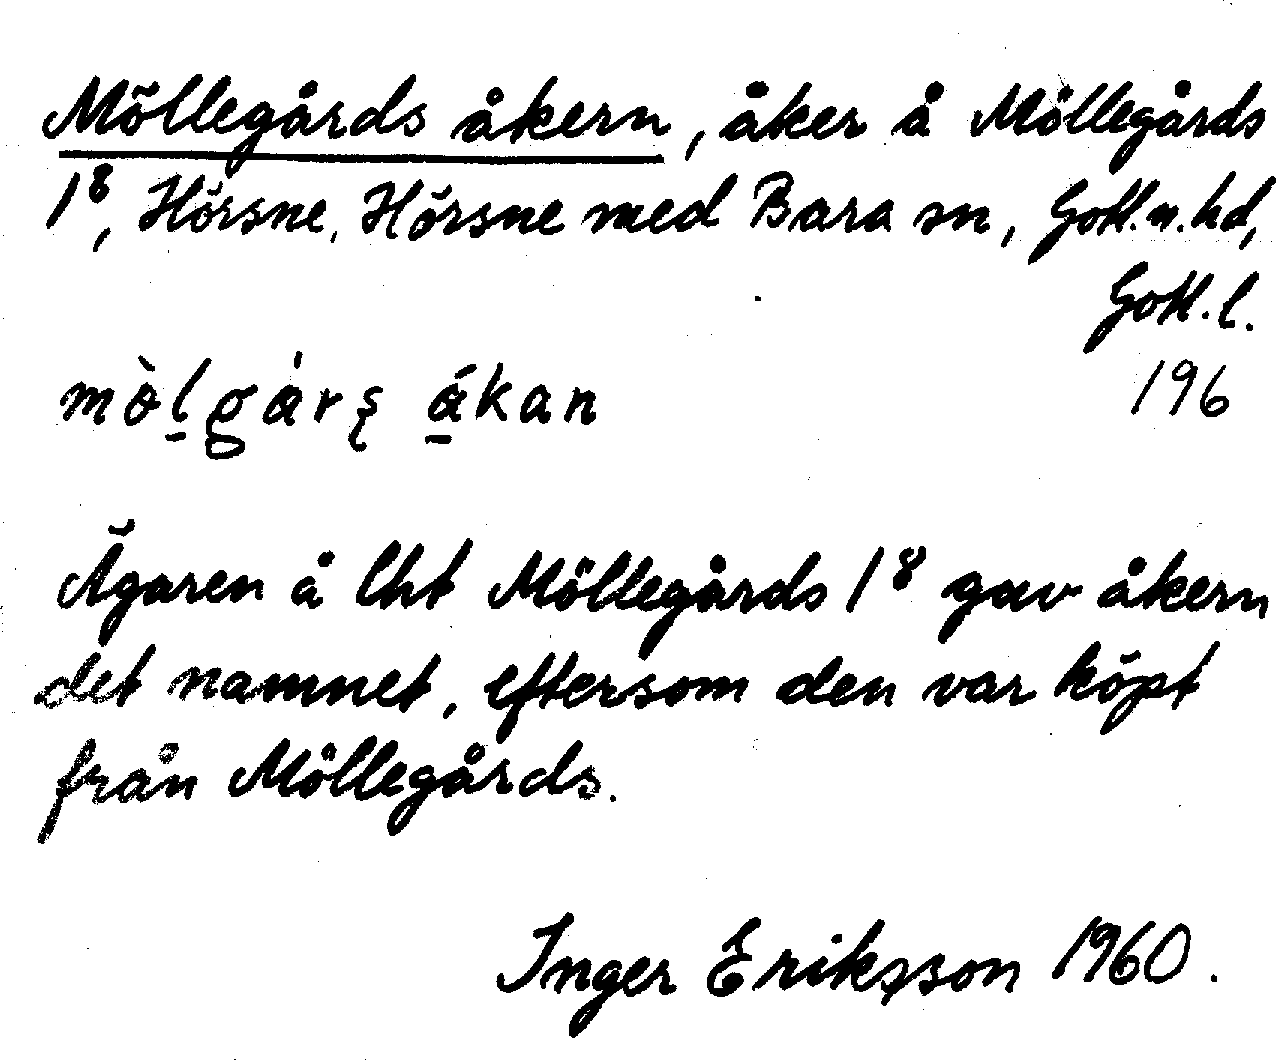 Möllegårds åkern, åker å Möllegårds
1⁸, Hörsne, Hörsne med Bara sn, Gotl. n. hd,
Gotl. l.
196
Ägaren å lht Möllegårds 1⁸ gav åkern
det namnet, eftersom den var köpt
från Möllegårds.
Inger Eriksson 1960.